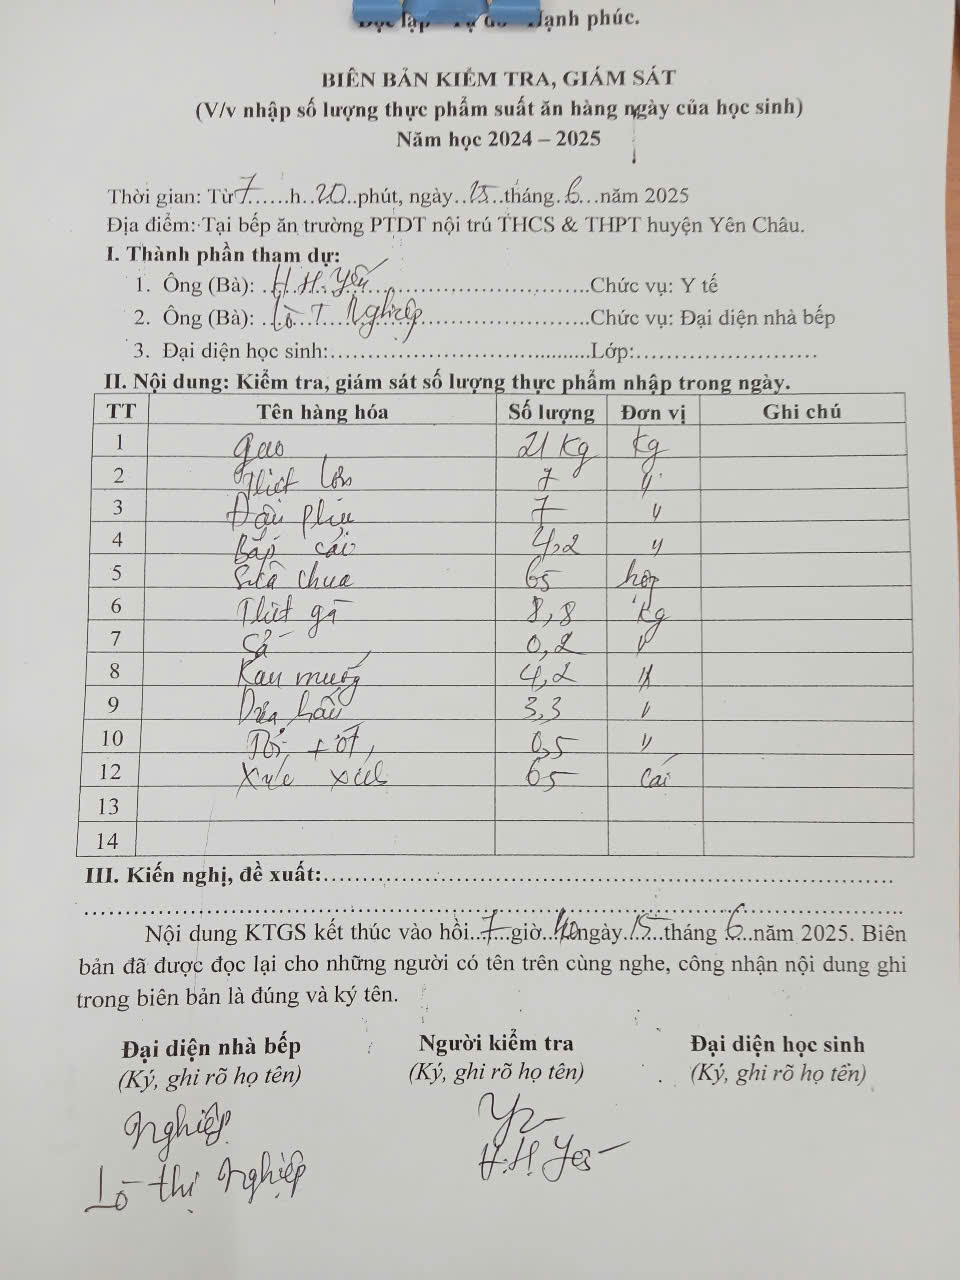 Độc lập - Tự do - Hạnh phúc.
BIÊN BẢN KIỂM TRA, GIÁM SÁT
(V/v nhập số lượng thực phẩm suất ăn hàng ngày của học sinh)
Năm học 2024 – 2025
Thời gian: Từ 7......h..20..phút, ngày..15..tháng..6...năm 2025
Địa điểm: Tại bếp ăn trường PTDT nội trú THCS & THPT huyện Yên Châu.
I. Thành phần tham dự:
1. Ông (Bà): ..H.H.Yến..............................Chức vụ: Y tế
2. Ông (Bà): ..Lò T Nghiệp..............................Chức vụ: Đại diện nhà bếp
3. Đại diện học sinh:........................................Lớp:.............................
II. Nội dung: Kiểm tra, giám sát số lượng thực phẩm nhập trong ngày.
TT Tên hàng hóa Số lượng Đơn vị Ghi chú
1 gạo 21 kg kg
2 Thịt lợn 7 "
3 Đậu phụ 7 "
4 Bắp cải 4,2 "
5 Sữa chua 65 hộp
6 Thịt gà 8,8 kg
7 Sả 0,2 "
8 Rau muống 4,2 "
9 Dưa hấu 3,3 "
10 Tỏi + ớt, 0,5 "
12 Xúc xích 65 cái
13
14
III. Kiến nghị, đề xuất:..........................................................................
..........................................................................................
Nội dung KTGS kết thúc vào hồi..7...giờ..40ngày..15...tháng 6....năm 2025. Biên
bản đã được đọc lại cho những người có tên trên cùng nghe, công nhận nội dung ghi
trong biên bản là đúng và ký tên.
Đại diện nhà bếp Người kiểm tra Đại diện học sinh
(Ký, ghi rõ họ tên) (Ký, ghi rõ họ tên) (Ký, ghi rõ họ tên)
Nghiệp
Lò thị Nghiệp H.H Yến